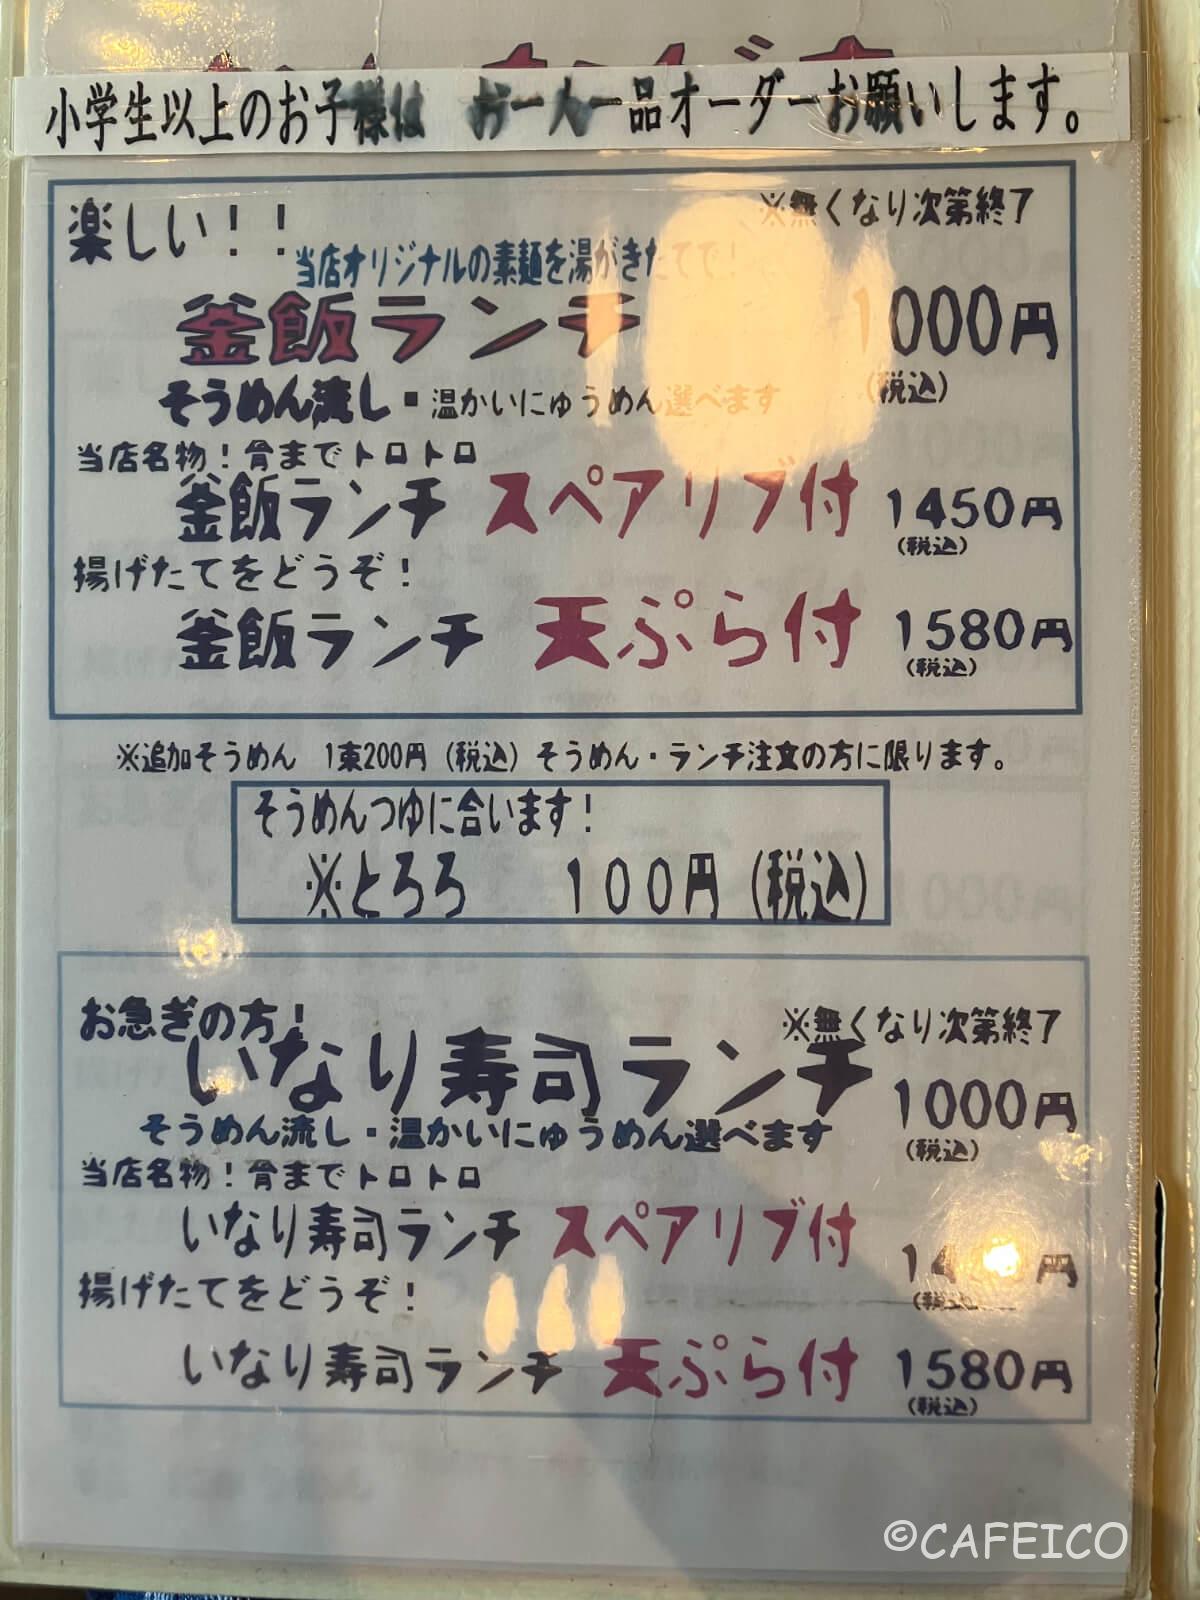 小学生以上のお子様は お一人一品オーダーお願いします。
楽しい!!
※無くなり次第終了
当店オリジナルの素麺を湯がきたてで!
釜飯ランチ 1000円
(税込)
そうめん流し・温かいにゅうめん選べます
当店名物!骨までトロトロ
釜飯ランチ スペアリブ付 1450円
(税込)
揚げたてをどうぞ!
釜飯ランチ 天ぷら付 1580円
(税込)
※追加そうめん 1束200円(税込)そうめん・ランチ注文の方に限ります。
そうめんつゆに合います!
※とろろ 100円(税込)
お急ぎの方!
※無くなり次第終了
いなり寿司ランチ 1000円
(税込)
そうめん流し・温かいにゅうめん選べます
当店名物!骨までトロトロ
いなり寿司ランチ スペアリブ付 円
(税込)
揚げたてをどうぞ!
いなり寿司ランチ 天ぷら付 1580円
(税込)
©CAFEICO